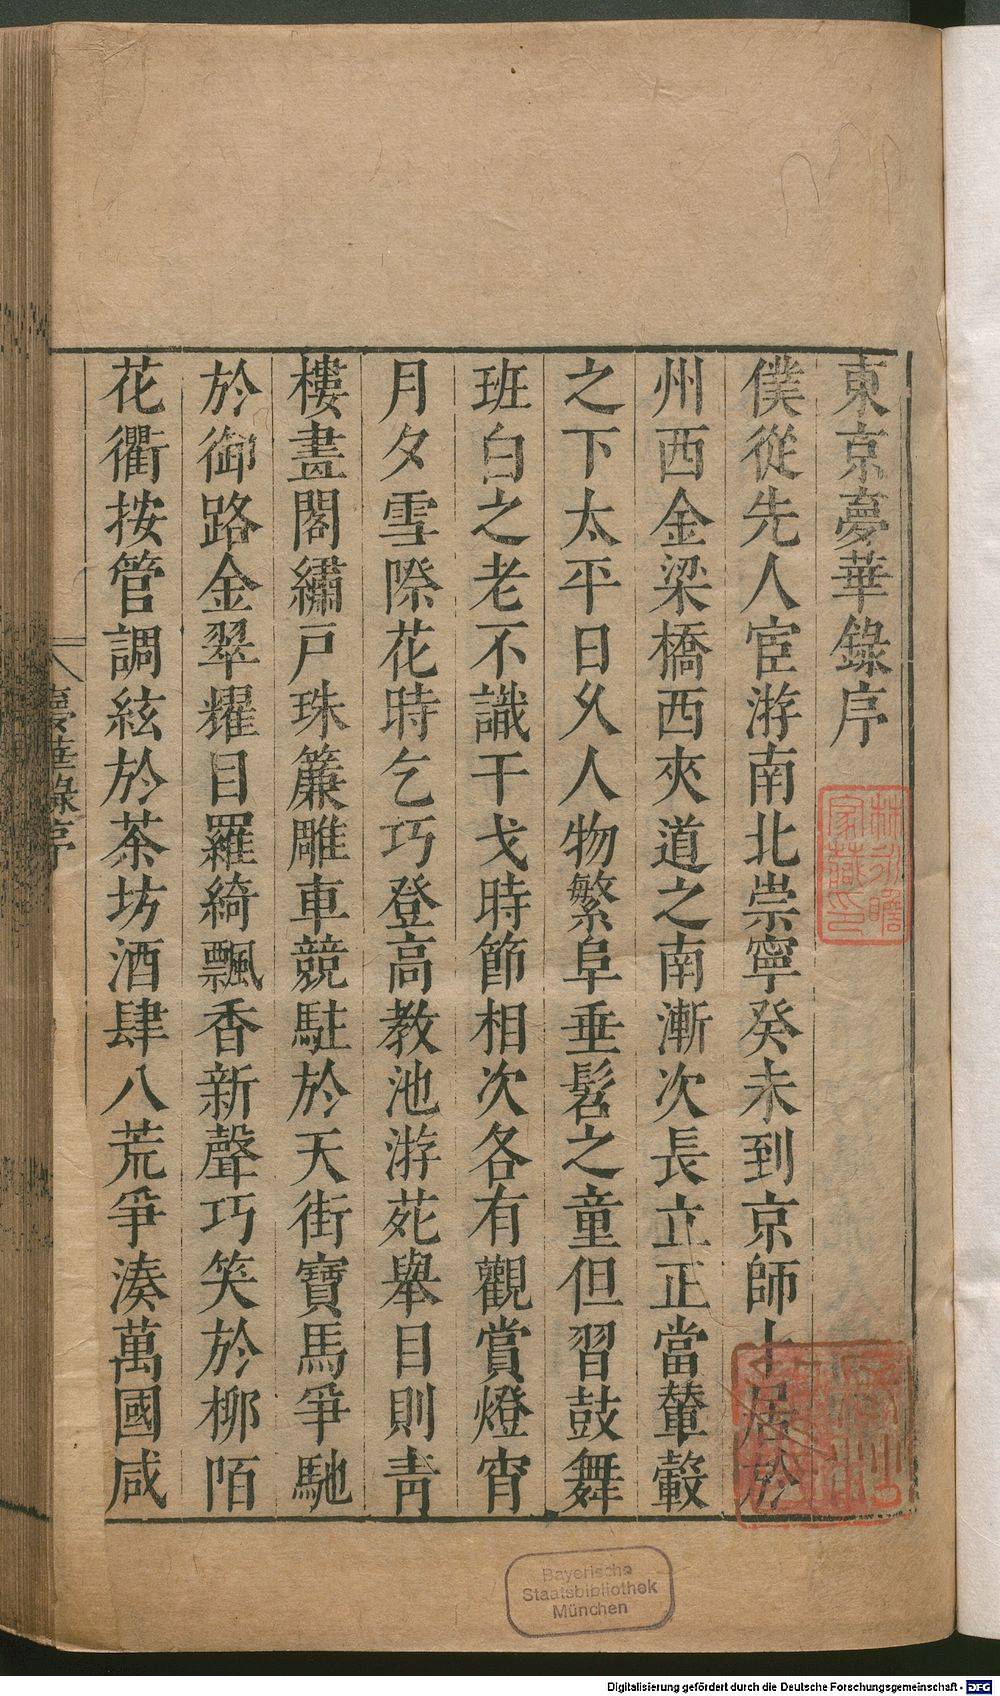 東京夢華錄序
僕從先人宦游南北崇寧癸未到京師卜居於
州西金梁橋西夾道之南漸次長立正當輦轂
之下太平日久人物繁阜垂髫之童但習鼓舞
班白之老不識干戈時節相次各有觀賞燈宵
月夕雪際花時乞巧登高教池游苑舉目則青
樓畫閣繡戶珠簾雕車競駐於天街寶馬爭馳
於御路金翠耀目羅綺飄香新聲巧笑於柳陌
花衢按管調絃於茶坊酒肆八荒爭湊萬國咸
夢華錄序
家藏印
Bayerische
Staatsbibliothek
München
Digitalisierung gefördert durch die Deutsche Forschungsgemeinschaft - DFG